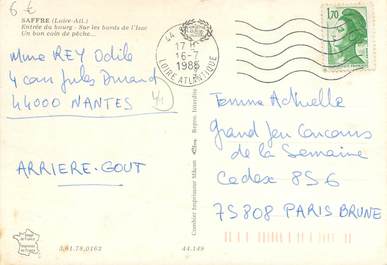 6 €
SAFFRE (Loire-Atl.)
Entrée du bourg - Sur les bords de l'Isac
Un bon coin de pêche...
Mme REY Odile
4 cours Jules Durand
44000 NANTES
ARRIERE-GOUT
44
17 H
16-7
1986
LOIRE ATLANTIQUE
1,70
Femme Actuelle
Grand Jeu Concours
de la Semaine
Cedex 856
75808 PARIS BRUNE
Combier Imprimeur Mâcon
3.61.78.0163
44.149